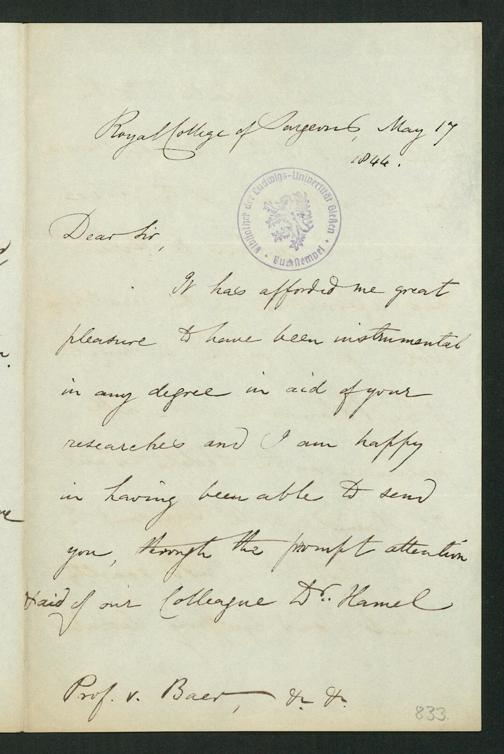 Royal College of Surgeons, May 17
1844.
Bibliothek der Ludwigs-Universität Gießen
Buchstempel
Dear Sir,
It has afforded me great
pleasure to have been instrumental
in any degree in aid of your
researches and I am happy
in having been able to send
you, through the prompt attention
& aid of our Colleague Dr. Hamel
Prof. v. Baer, &c. &c.
833